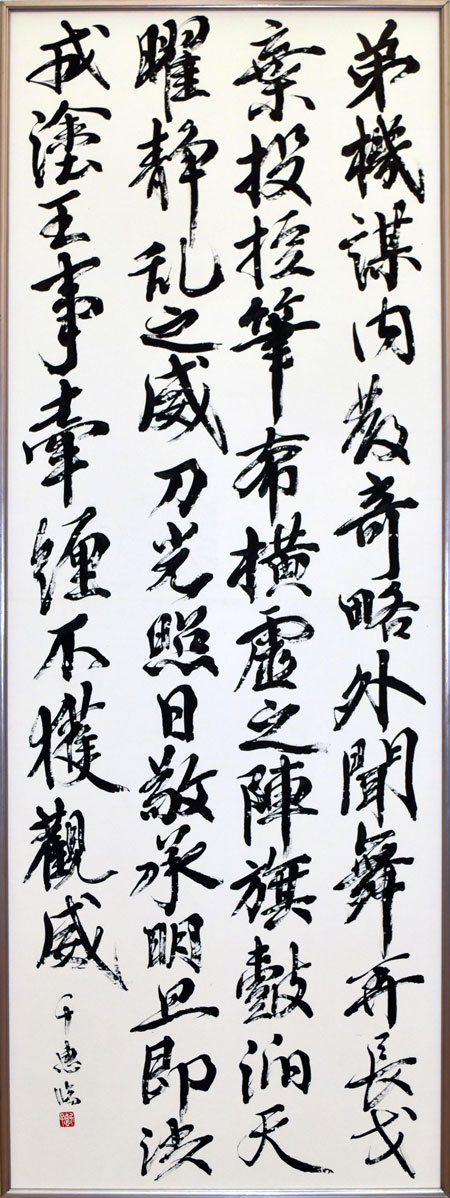 弟機謀内發奇略外聞舞再長戈
棄投筆布横虚之陣旗鼓天
曜静乱之威刀光照日敬承明旦即
戎塗王事牽纏不獲觀威
千惠臨